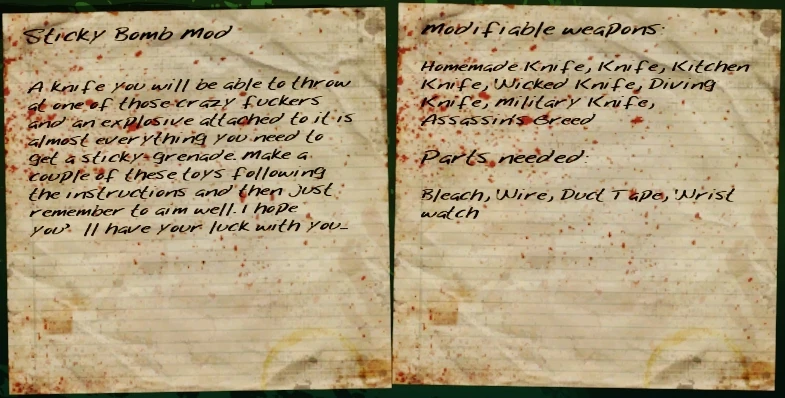 Sticky Bomb Mod
A knife you will be able to throw
at one of those crazy fuckers
and an explosive attached to it is
almost everything you need to
get a sticky-grenade. Make a
couple of these toys following
the instructions and then just
remember to aim well. I hope
you'll have your luck with you...
Modifiable weapons:
Homemade Knife, Knife, Kitchen
Knife, Wicked Knife, Diving
Knife, Military Knife,
Assassin's Greed
Parts needed:
Bleach, Wire, Duct Tape, Wrist
watch